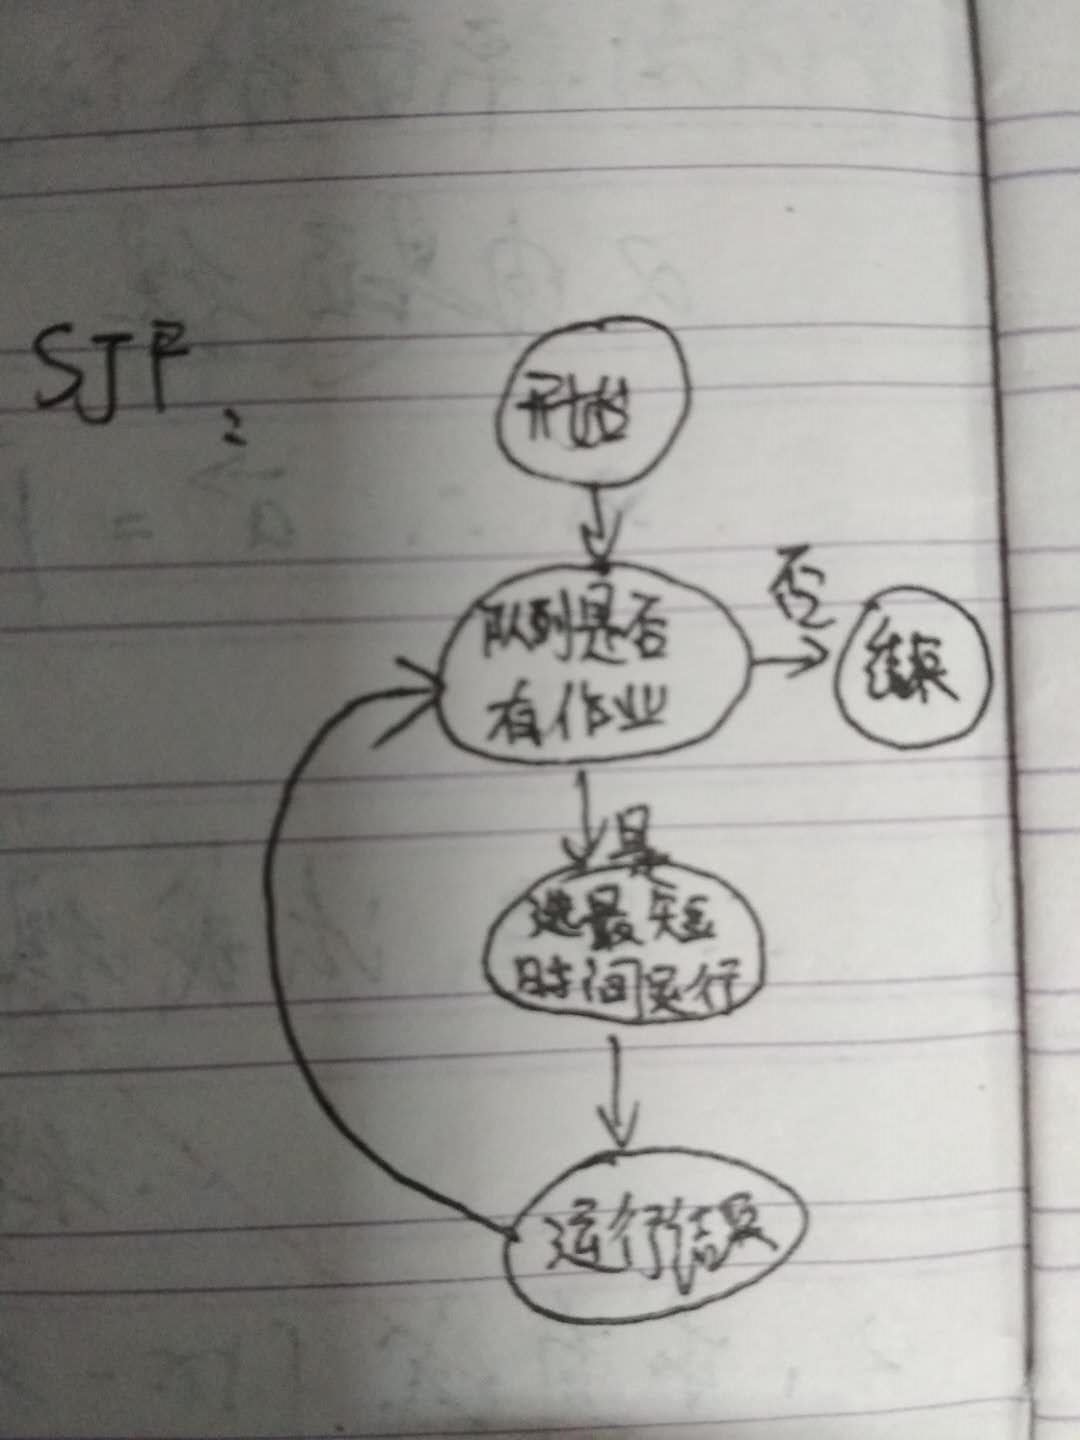 SJF:
开始
队列是否
有作业
否
结束
是
选最短
时间运行
运行结束